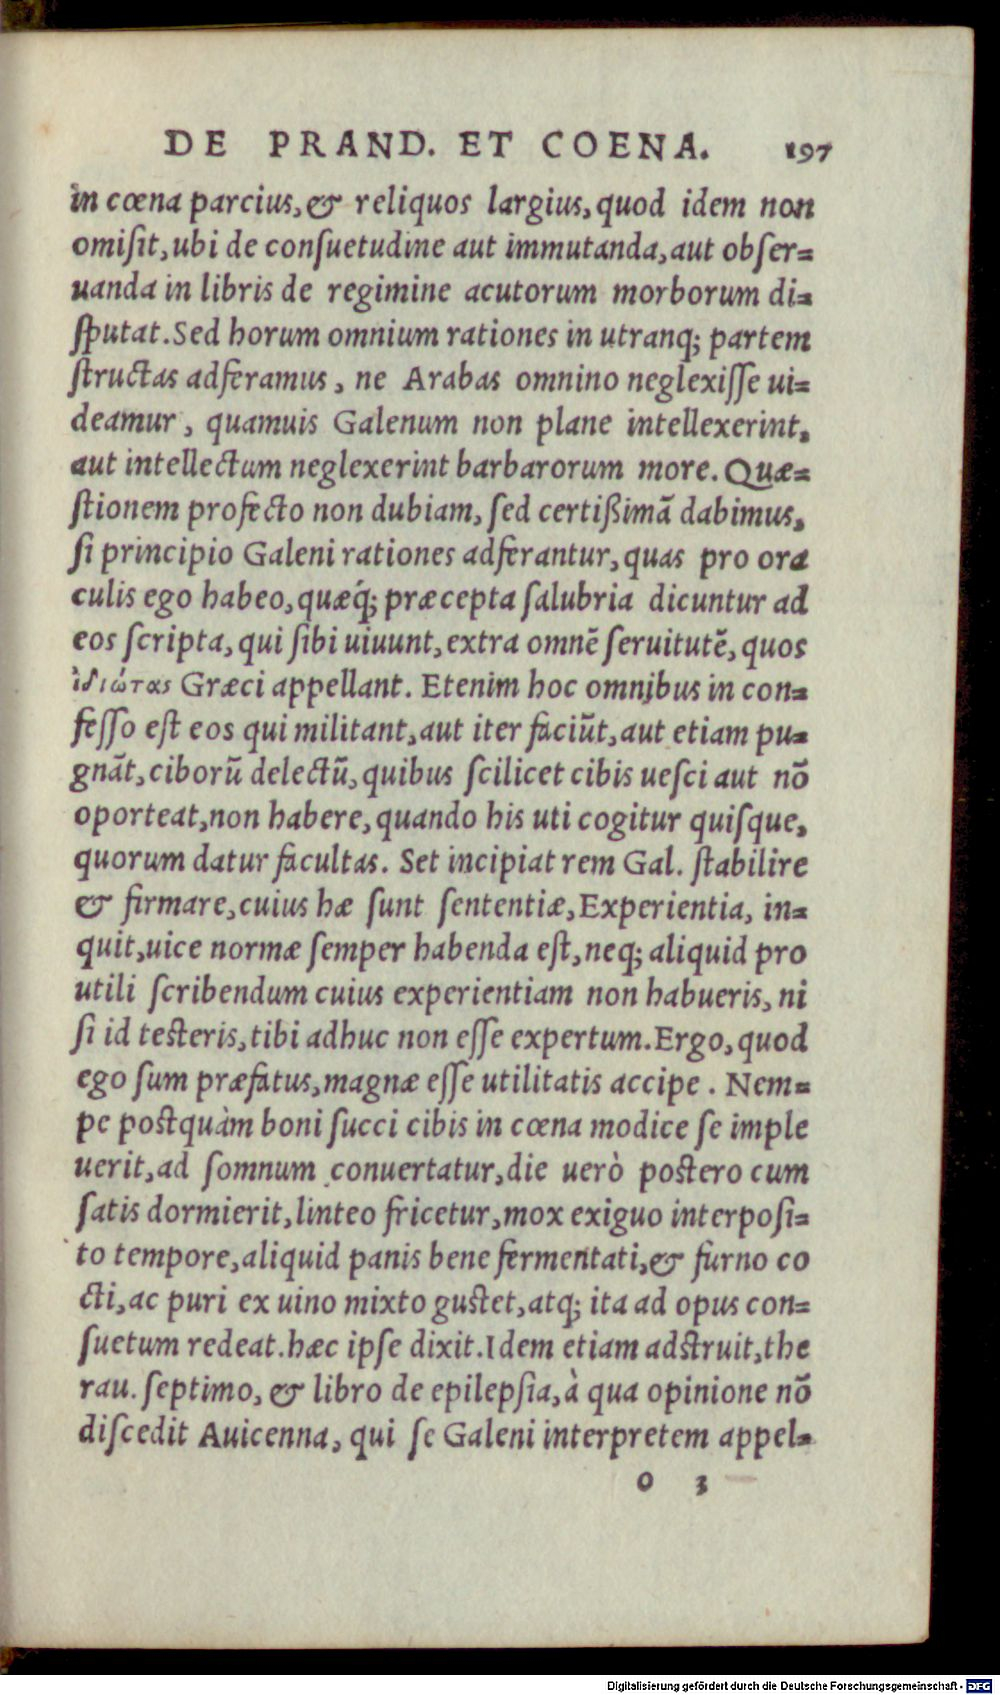 DE PRAND. ET COENA. 197
in cœna parcius, & reliquos largius, quod idem non
omisit, ubi de consuetudine aut immutanda, aut obser=
uanda in libris de regimine acutorum morborum di=
sputat. Sed horum omnium rationes in utranq; partem
structas adferamus, ne Arabas omnino neglexisse ui=
deamur, quamuis Galenum non plane intellexerint,
aut intellectum neglexerint barbarorum more. Quæ=
stionem profecto non dubiam, sed certißimā dabimus,
si principio Galeni rationes adferantur, quas pro ora
culis ego habeo, quæq́; præcepta salubria dicuntur ad
eos scripta, qui sibi uiuunt, extra omnē seruitutē, quos
ἰδιώτας Græci appellant. Etenim hoc omnibus in con=
fesso est eos qui militant, aut iter faciūt, aut etiam pu=
gnāt, ciborū delectū, quibus scilicet cibis uesci aut nō
oporteat, non habere, quando his uti cogitur quisque,
quorum datur facultas. Set incipiat rem Gal. stabilire
& firmare, cuius hæ sunt sententiæ, Experientia, in=
quit, uice normæ semper habenda est, neq; aliquid pro
utili scribendum cuius experientiam non habueris, ni
si id testeris, tibi adhuc non esse expertum. Ergo, quod
ego sum præfatus, magnæ esse utilitatis accipe. Nem=
pe postquàm boni succi cibis in cœna modice se imple
uerit, ad somnum conuertatur, die uerò postero cum
satis dormierit, linteo fricetur, mox exiguo interposi=
to tempore, aliquid panis bene fermentati, & furno co
cti, ac puri ex uino mixto gustet, atq; ita ad opus con=
suetum redeat. hæc ipse dixit. Idem etiam adstruit, the
rau. septimo, & libro de epilepsia, à qua opinione nō
discedit Auicenna, qui se Galeni interpretem appel=
o 3
Digitalisierung gefördert durch die Deutsche Forschungsgemeinschaft - DFG